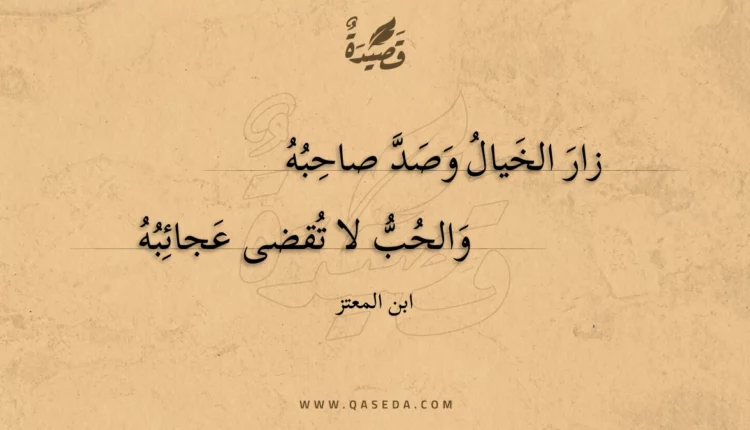 قَصِيدَةٌ
زارَ الخَيالُ وَصَدَّ صاحِبُهُ
وَالحُبُّ لا تُقضى عَجائِبُهُ
ابن المعتز
WWW.QASEDA.COM